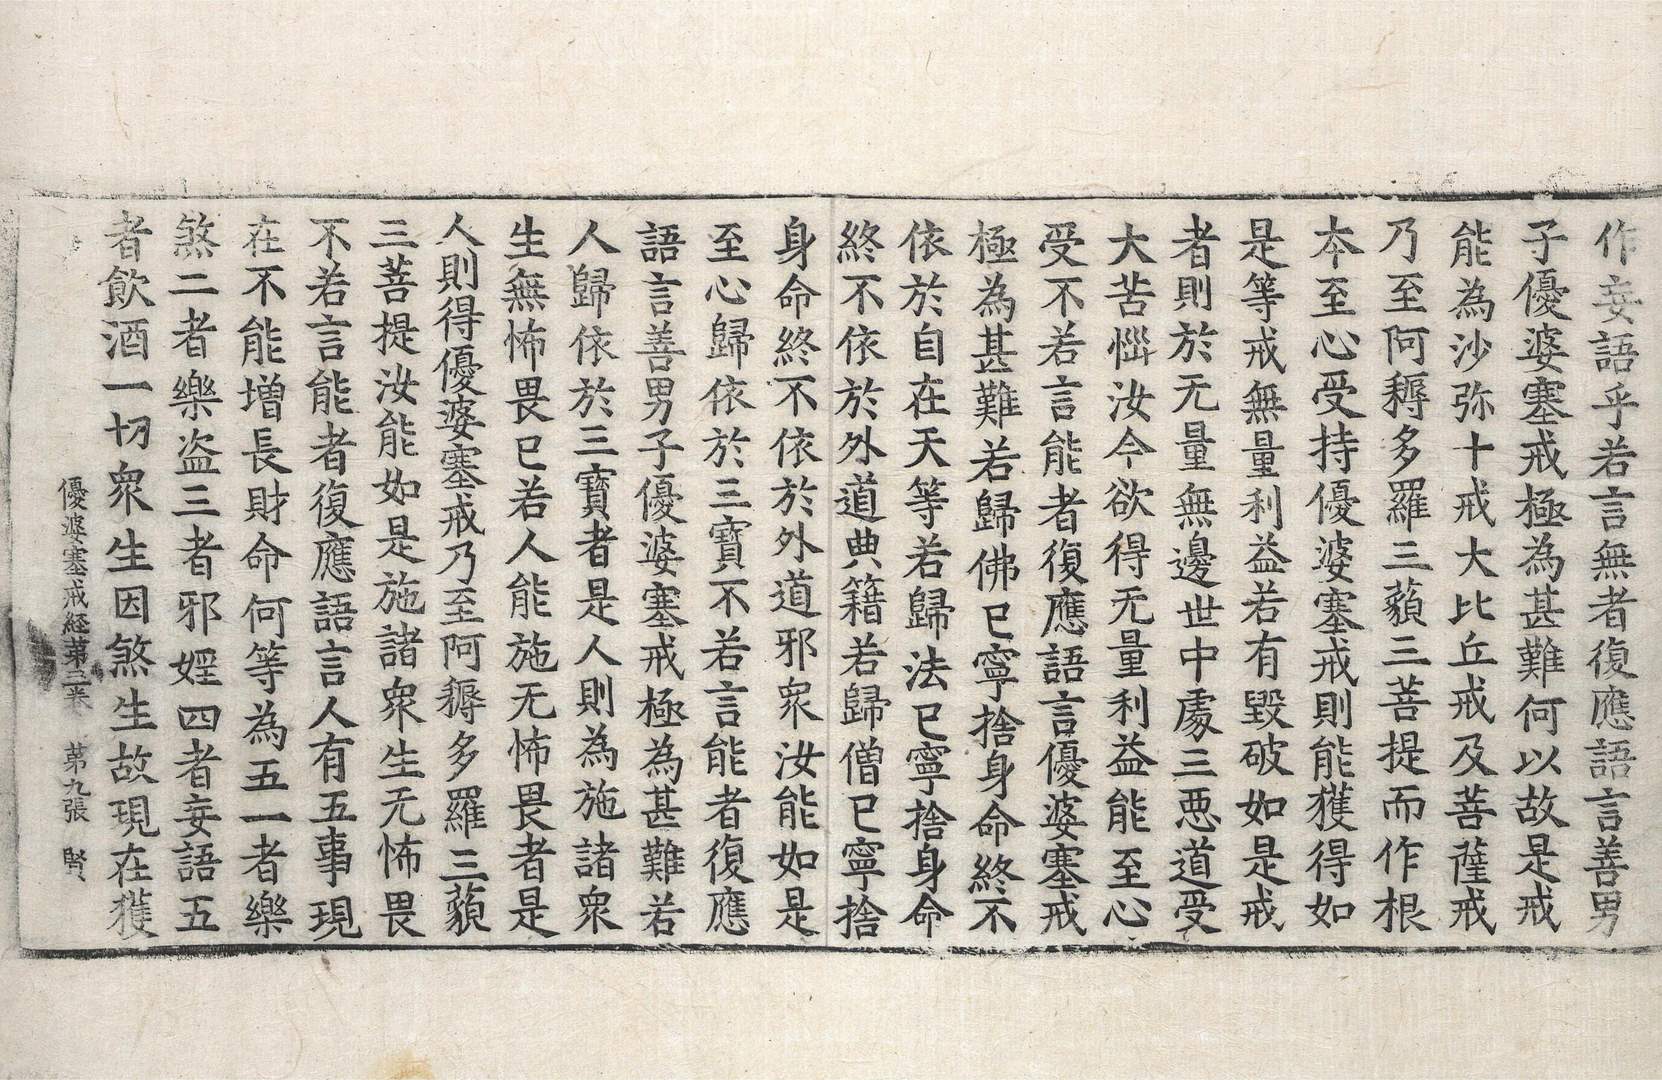 作妄語乎若言無者復應語言善男
子優婆塞戒極為甚難何以故是戒
能為沙弥十戒大比丘戒及菩薩戒
乃至阿耨多羅三藐三菩提而作根
夲至心受持優婆塞戒則能獲得如
是等戒無量利益若有毀破如是戒
者則於无量無邊世中處三惡道受
大苦惱汝今欲得无量利益能至心
受不若言能者復應語言優婆塞戒
極為甚難若歸佛已寧捨身命終不
依於自在天等若歸法已寧捨身命
終不依於外道典籍若歸僧已寧捨
身命終不依於外道邪衆汝能如是
至心歸依於三寶不若言能者復應
語言善男子優婆塞戒極為甚難若
人歸依於三寶者是人則為施諸衆
生無怖畏已若人能施无怖畏者是
人則得優婆塞戒乃至阿耨多羅三藐
三菩提汝能如是施諸衆生无怖畏
不若言能者復應語言人有五事現
在不能增長財命何等為五一者樂
煞二者樂盜三者邪婬四者妄語五
者飲酒一切衆生因煞生故現在獲
優婆塞戒経第三卷 第九張 賢